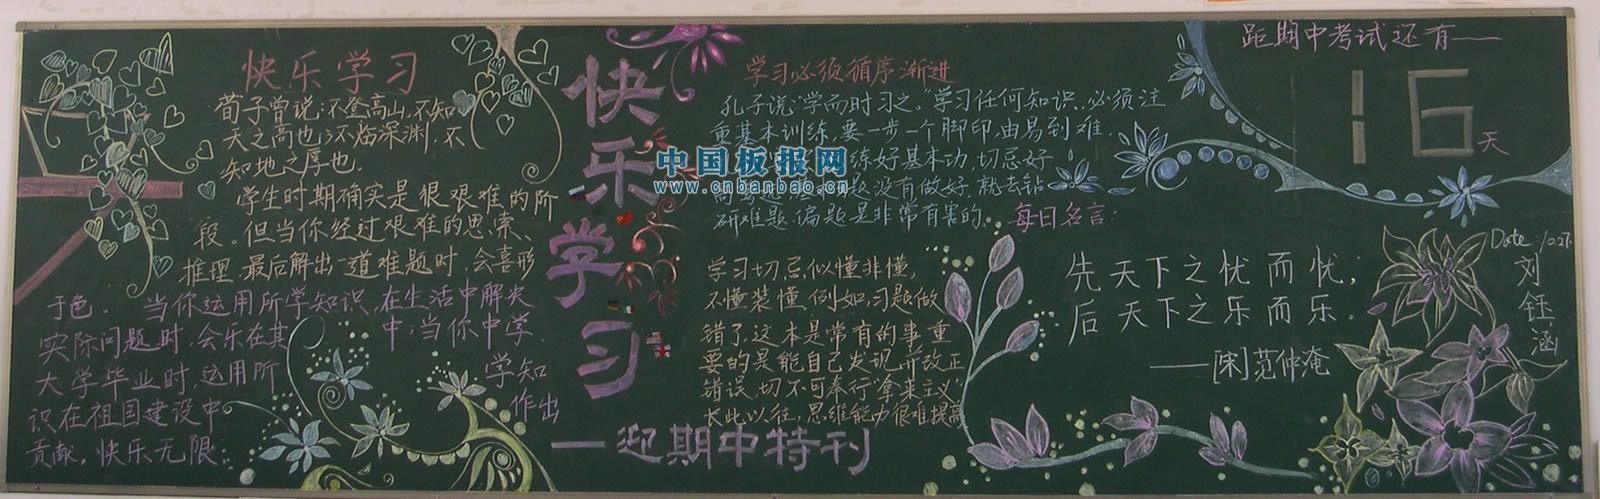 快乐学习
荀子曾说:不登高山,不知
天之高也;不临深渊,不
知地之厚也.
学生时期确实是很艰难的阶
段。但当你经过艰难的思索、
推理,最后解出一道难题时,会喜形
于色. 当你运用所学知识,在生活中解决
实际问题时,会乐在其中;当你中学、
大学毕业时,运用所学知
识在祖国建设中作出
贡献,快乐无限.
快乐学习
——迎期中特刊
学习必须循序渐进
孔子说:"学而时习之."学习任何知识,必须注
重基本训练,要一步一个脚印,由易到难.
练好基本功,切忌好
没有做好,就去钻
研难题、偏题是非常有害的。
学习切忌似懂非懂,
不懂装懂.例如,习题做
错了,这本是常有的事,重
要的是能自己发现并改正
错误,切不可奉行"拿来主义"
长此以往,思维能力很难提高
每日名言:
先天下之忧而忧,
后天下之乐而乐.
——[宋]范仲淹
距期中考试还有——
16天
Date:10.27.
刘钰涵
中国板报网
www.cnbanbao.cn